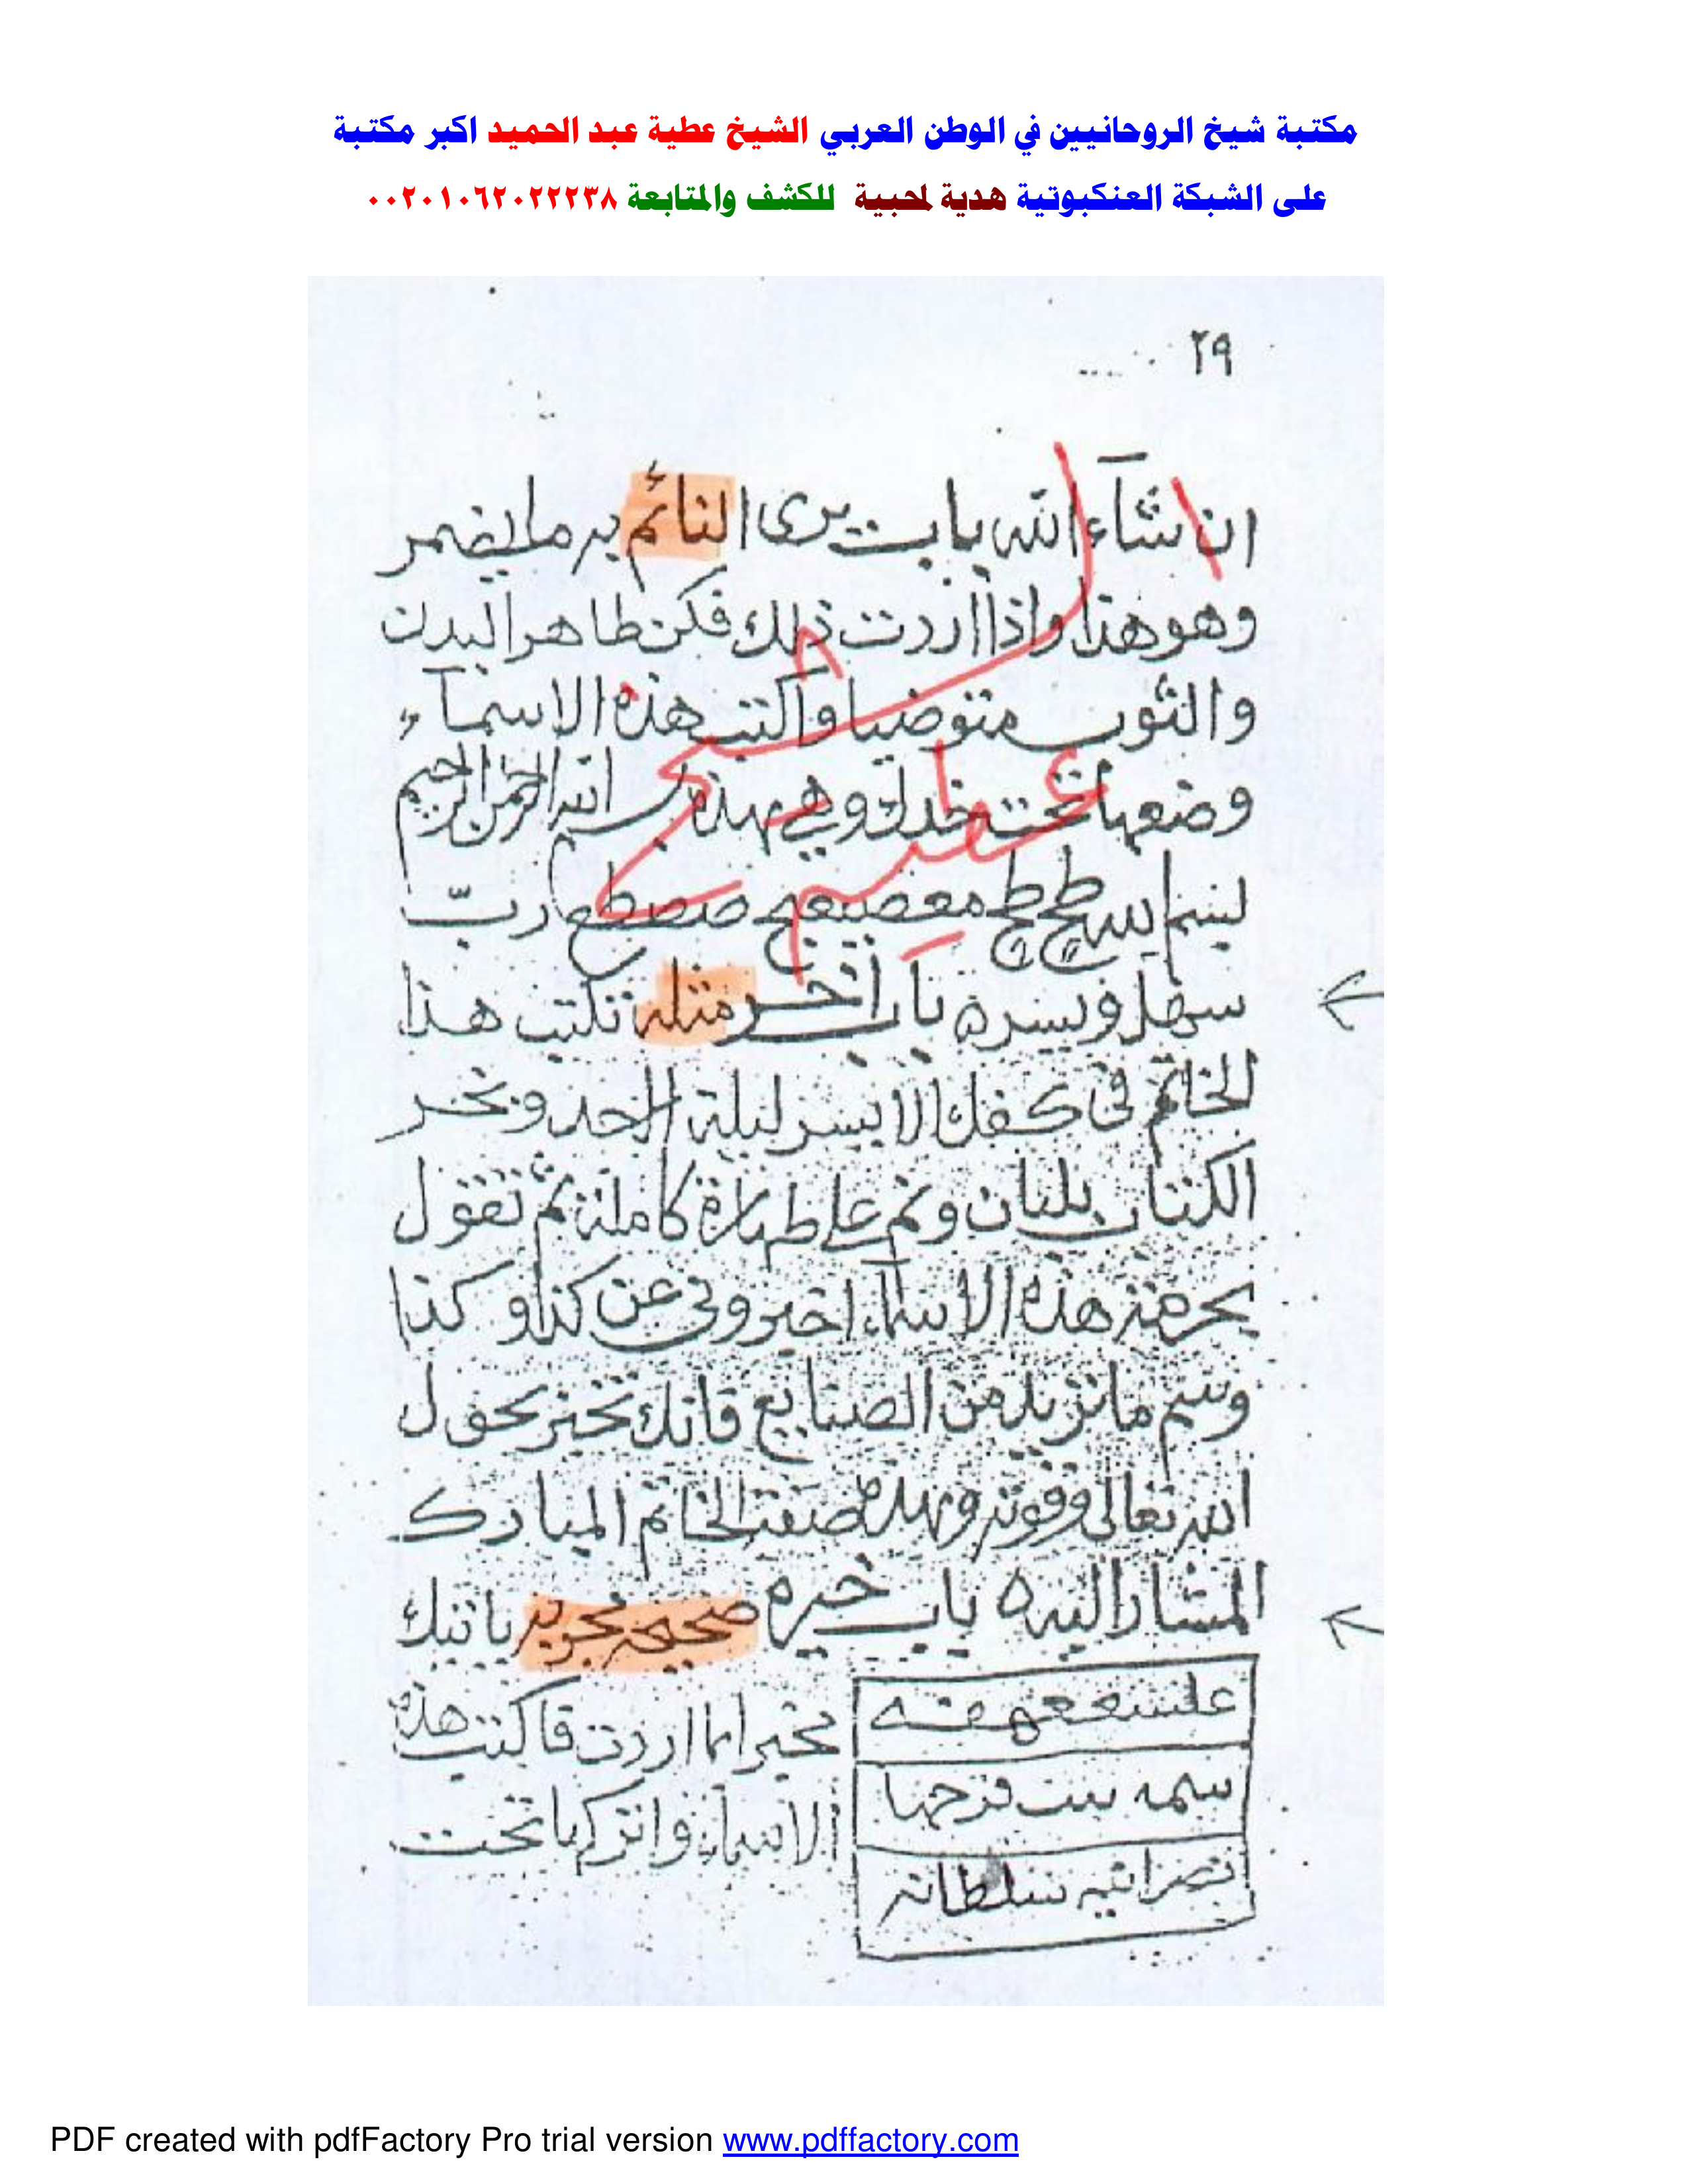 مكتبة شيخ الروحانيين في الوطن العربي الشيخ عطية عبد الحميد اكبر مكتبة
على الشبكة العنكبوتية هدية لمحبية للكشف والمتابعة ٠٠٢٠١٠٦٢٠٢٢٢٣٨
٢٩
ان شآء الله باب يرى النائم به ما يضمر
وهو هذا واذا اردت ذلك فكن طاهر البدن
والثوب متوضيا واكتب هذه الاسمآء
وضعها تحت خدك وهي هذه بسم الله الرحمن الرحيم
رب
سهل ويسره باب اخر مثله تكتب هذا
الخاتم في كفك الايسر ليلة الاحد وبخر
الكتاب بلبان ونم على طهارة كاملة ثم تقول
بحرمة هذه الاسمآء اخبروني عن كذا وكذا
وسم ما تريد من الصنايع فانك تخبر بحول
الله تعالى وقوته وهذه صفة الخاتم المبارك
المشار اليه ه باب خيره صحيحه مجربه ياتيك
مخبرا بما اردت فاكتب هذه
الاسماء واتركها تحت
سمه بنت فرحها
نصرانيه سلطانه
الشيخ
عطيه
PDF created with pdfFactory Pro trial version www.pdffactory.com